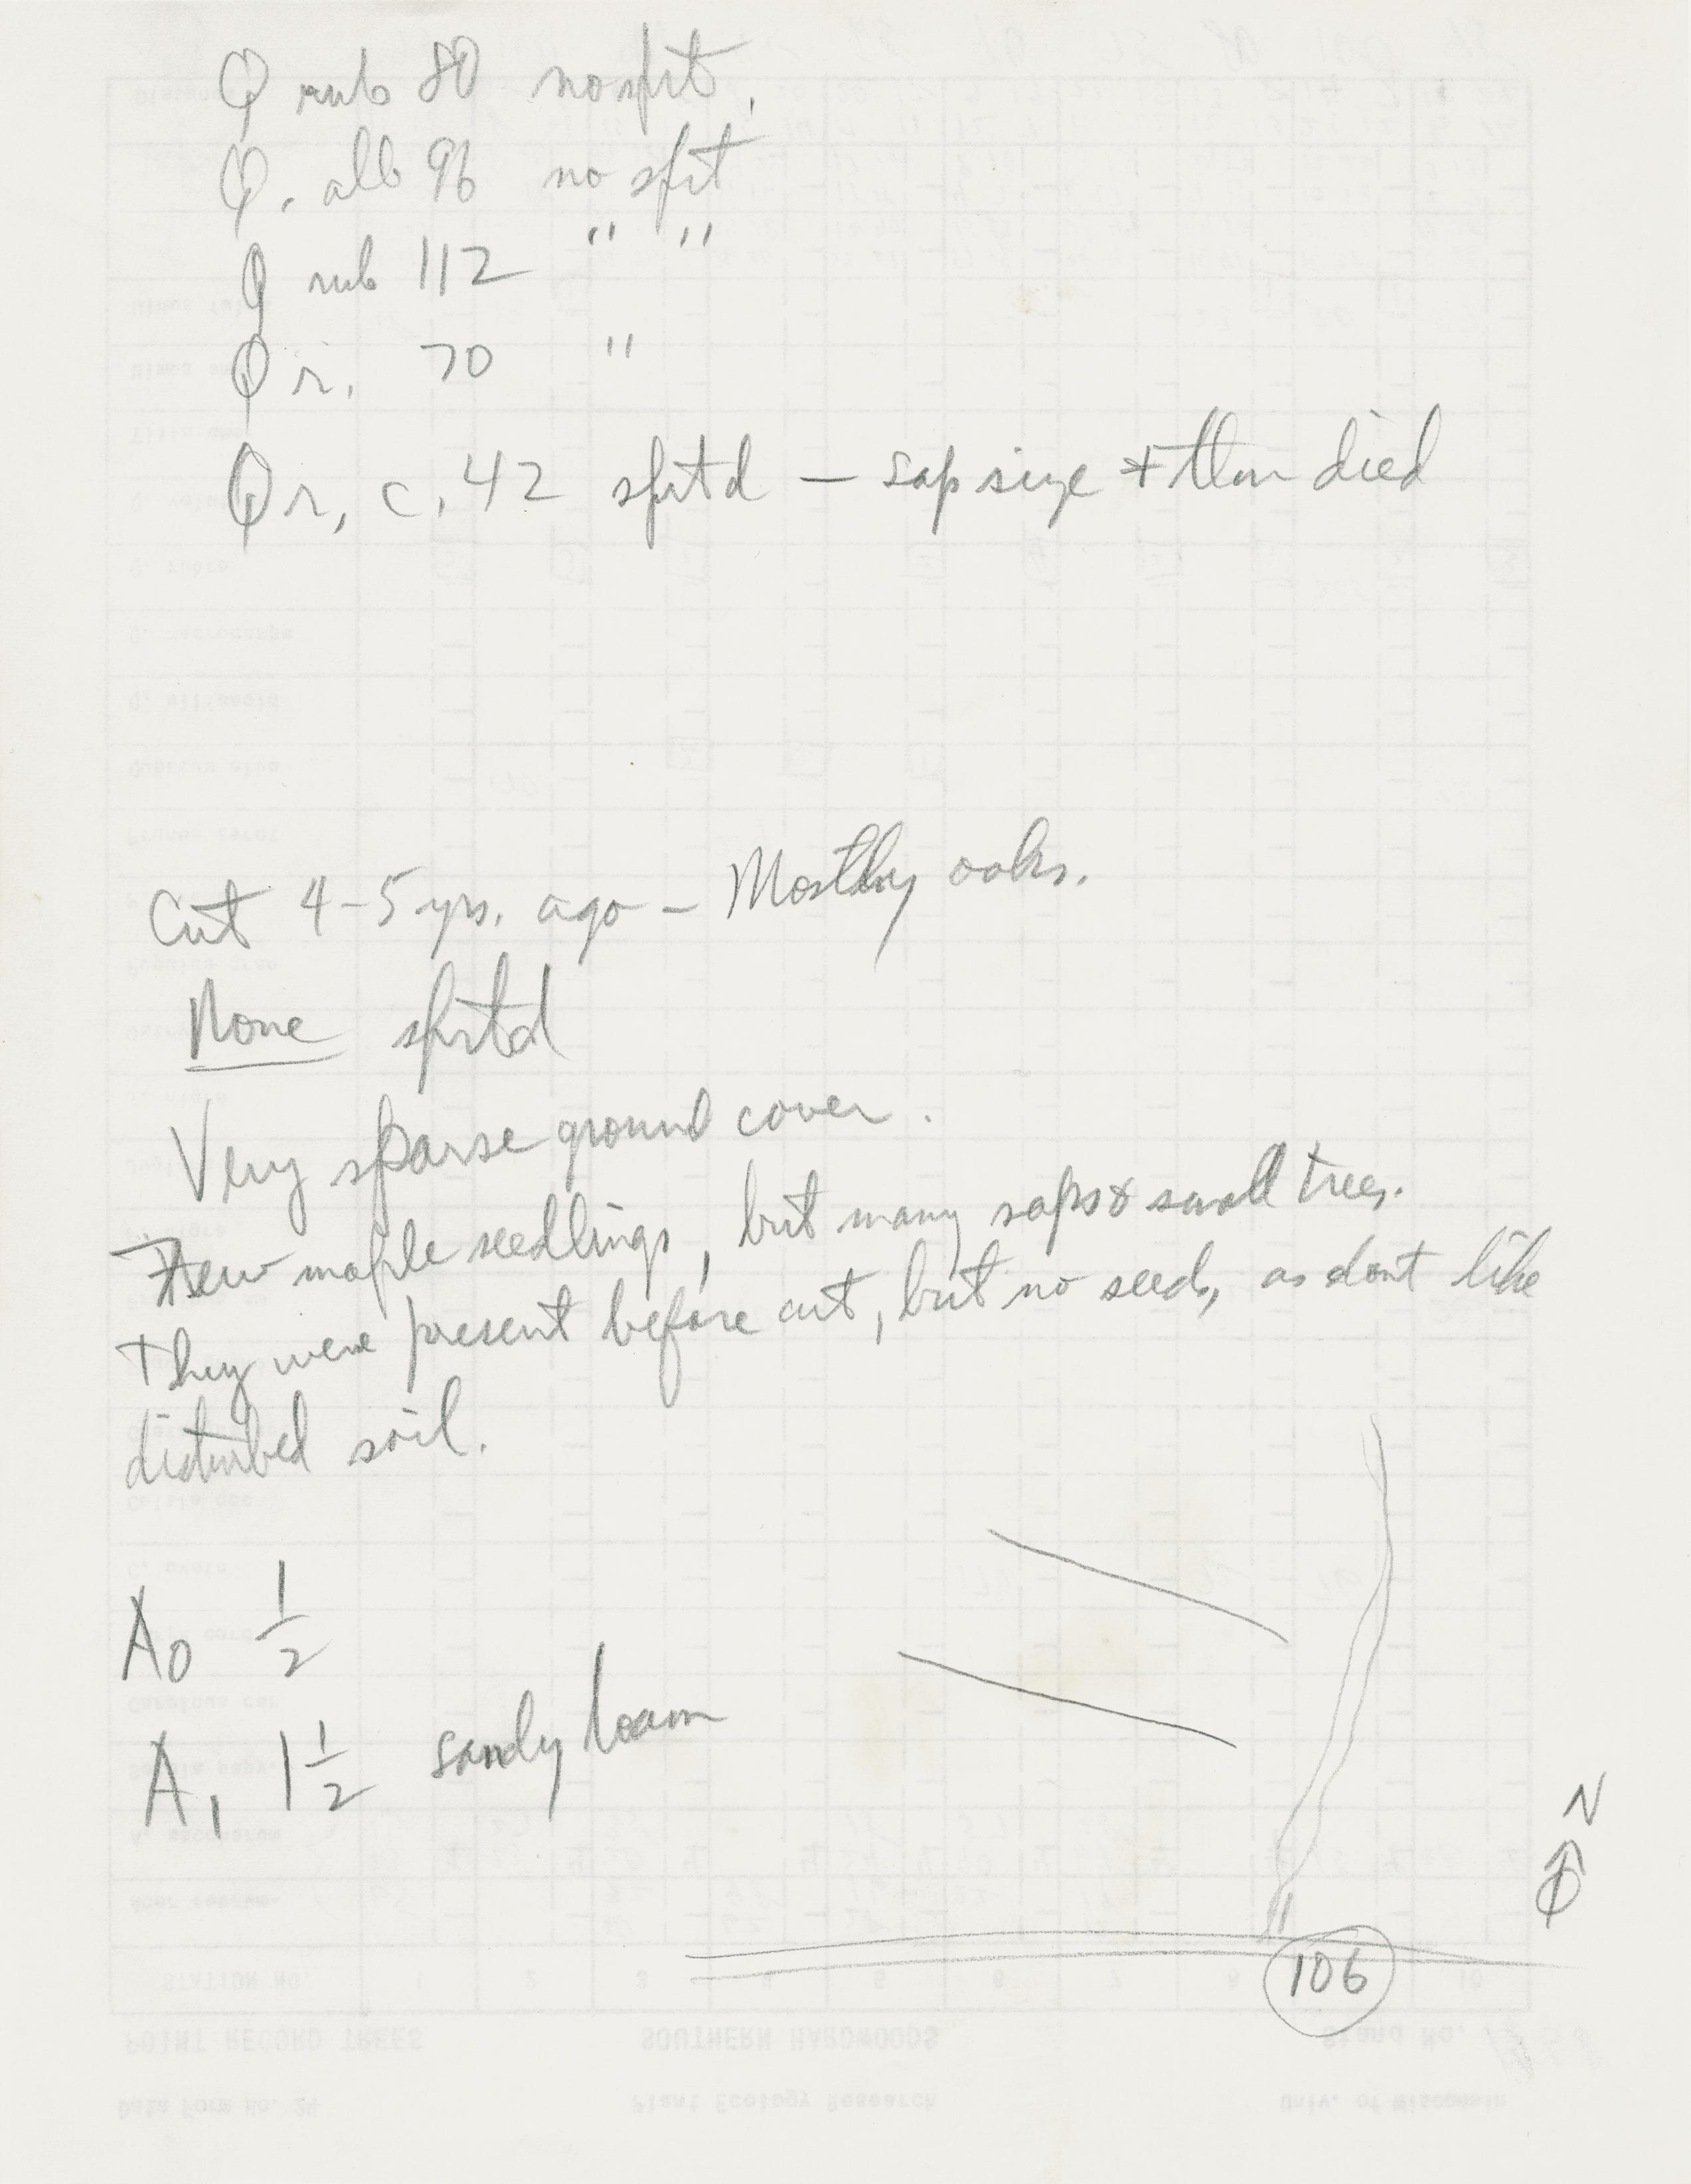 Q rub 80 no sprt.
Q. alb 96 no sprt
Q rub 112 " "
Q r. 70 "
Q r. c. 42 sprtd — sap size + then died
Cut 4-5 yrs. ago - Mostly oaks.
None sprtd
Very sparse ground cover.
Few maple seedlings, but many saps & small trees.
They were present before cut, but no seeds, as dont like
disturbed soil.
A0 1/2
A1 1 1/2 sandy loam
N
106